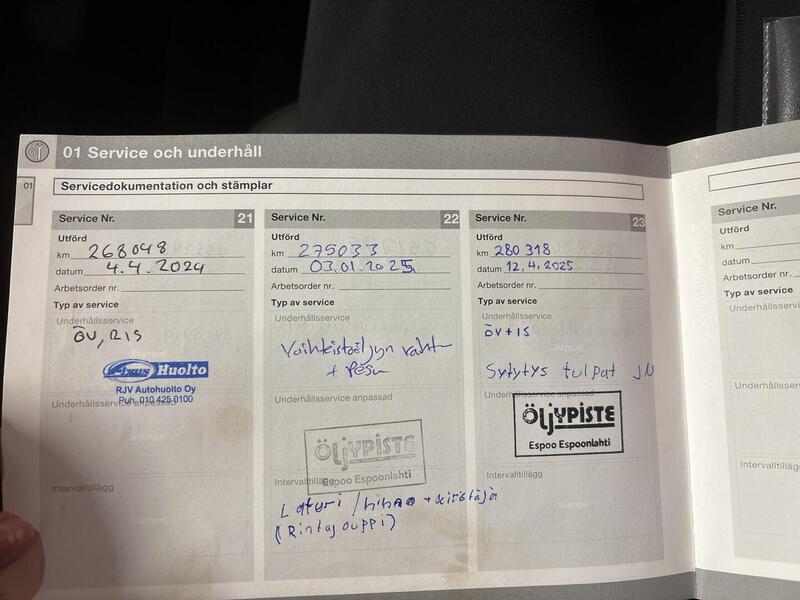 01 Service och underhåll
01
Servicedokumentation och stämplar
Service Nr. 21
Utförd
km 268048
datum 4.4.2024
Arbetsorder nr.
Typ av service
Underhållsservice
ÖV, RIS
Huolto
RJV Autohuolto Oy
Puh. 010 425 0100
Underhållsservice anpassad
Stämpel
Intervalltillägg
Stämpel
Service Nr. 22
Utförd
km 275033
datum 03.01.2025
Arbetsorder nr.
Typ av service
Underhållsservice
Vaihteistoöljyn vaihto
+ Pesu
Underhållsservice anpassad
ÖLJYPISTE
Espoo Espoonlahti
Intervalltillägg
Laturi / hihna + kiristäjä
(Rintajouppi)
Service Nr. 23
Utförd
km 280318
datum 12.4.2025
Arbetsorder nr.
Typ av service
Underhållsservice
ÖV+IS
Sytytys tulpat JN
Underhållsservice anpassad
ÖLJYPISTE
Espoo Espoonlahti
Intervalltillägg
Stämpel
Service Nr.
Utförd
km
datum
Arbetsorder nr.
Typ av service